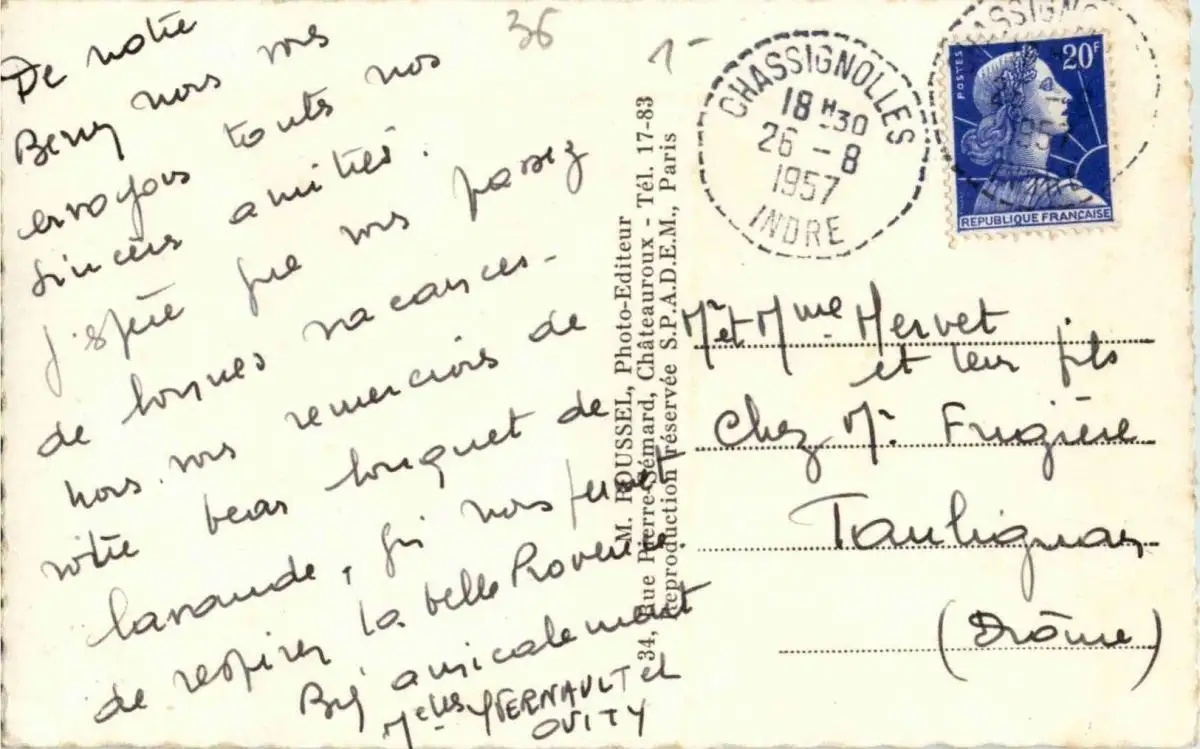 36
1-
De notre
Berry nous vous
envoyons toutes nos
sincères amitiés.
J'espère que vous passez
de bonnes vacances.
Nous vous remercions de
votre beau bouquet de
lavande, qui nous permet
de respirer la belle Provence.
Bien amicalement
Melles et
OUITY
M. ROUSSEL, Photo-Editeur
34, Rue Pierre-Sémard, Châteauroux - Tél. 17-83
Reproduction réservée S.P.A.D.E.M., Paris
CHASSIGNOLLES
18 H30
26 - 8
1957
INDRE
CHASSIGNOLLES
1957
POSTES
20F
REPUBLIQUE FRANÇAISE
Mr et Mme Hervet
et leur fils
Chez Mr. Frugière
Taulignan
(Drôme)